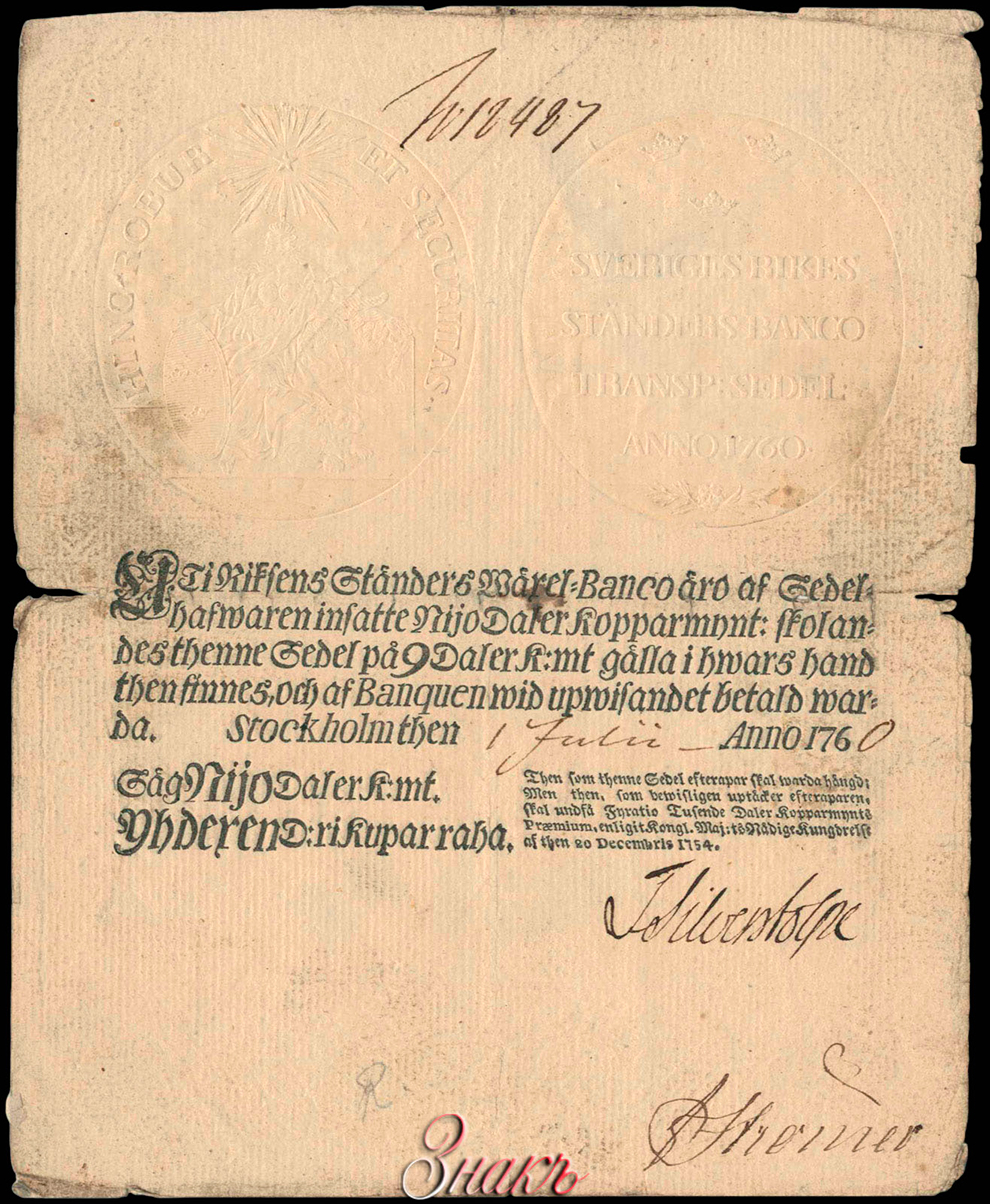 No 12487
HINC ROBUR ET SECURITAS.
SVERIGES RIKES
STÄNDERS BANCO
TRANSP: SEDEL:
ANNO 1760.
UTi Riksens Ständers Wäxel-Banco äro af Sedel-
hafwaren insatte Nijo Daler Kopparmynt: skolan-
des thenne Sedel på 9 Daler K:mt gälla i hwars hand
then finnes, och af Banquen wid upwisandet betald war-
da. Stockholm then 1 Julii — Anno 1760
Säg Nijo Daler K:mt.
Yhdexen D:ri Kuparraha.
Then som thenne Sedel efterapar skal warda hängd;
Men then, som bewisligen uptäcker efteraparen,
skal undfå Fyratio Tusende Daler Kopparmynts
Præmium, enligit Kongl. Maj:ts Nådige Kungörelse
af then 20 Decembris 1754.
J Silverstolpe
Strömer
R
Знакъ